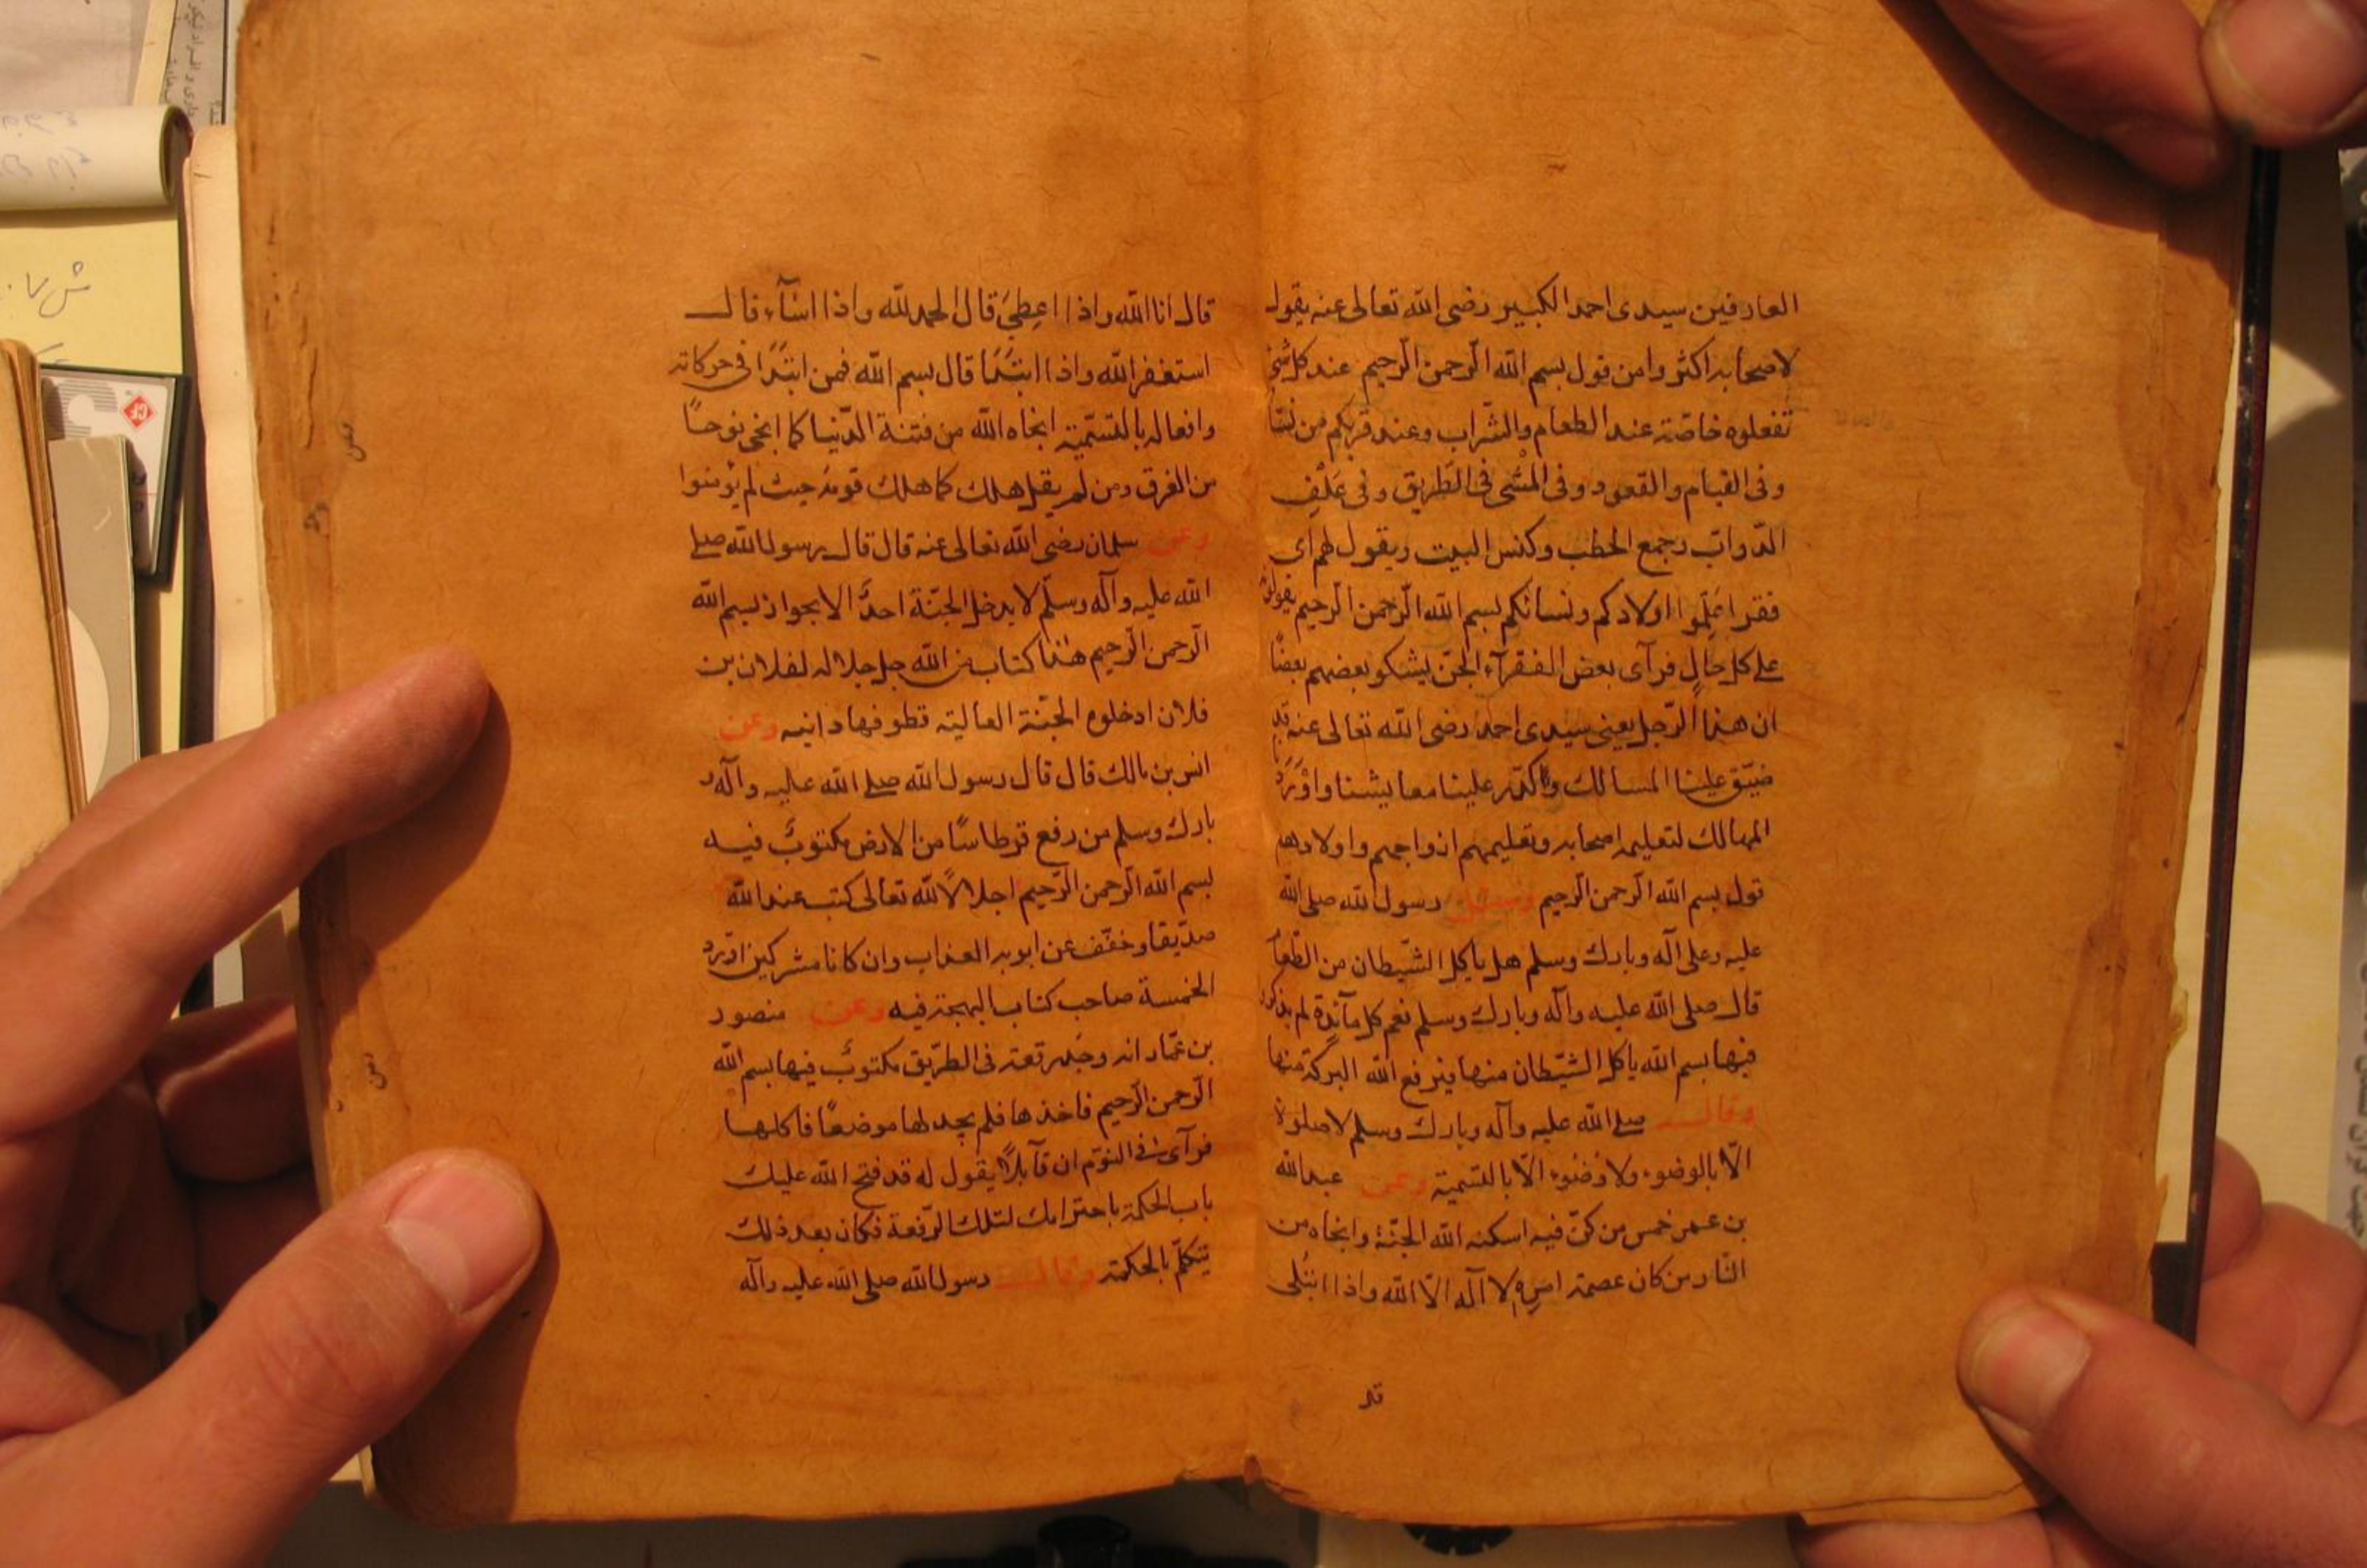 العارفين سيدى احمد الكبير رضى الله تعالى عنه يقول
لاصحابه اكثروا من قول بسم الله الرّحمن الرّحيم عند كل شئ
تفعلوه خاصّة عند الطعام والشّراب وعند قربكم من نسا
وفى القيام والقعود وفى المشى فى الطّريق وفى علف
الدّواب وجمع الحطب وكنس البيت ويقول لهم اى
فقرا علّموا اولادكم ونسائكم بسم الله الرّحمن الرّحيم يقولون
على كل حالٍ فرآى بعض الفقرآء الجنّ يشكو بعضهم بعضًا
ان هذا الرّجل يعنى سيدى احمد رضى الله تعالى عنه قد
ضيّق علينا المسالك واكدّر علينا معايشنا واورد
المهالك لتعليمه اصحابه وتعليمهم ازواجهم واولادهم
قول بسم الله الرّحمن الرّحيم وسئل رسول الله صلى الله
عليه وعلى آله وبارك وسلم هل ياكل الشّيطان من الطّعا
قال صلى الله عليه وآله وبارك وسلم نعم كل مآئدة لم يذكر
فيها بسم الله ياكل الشّيطان منها ويرفع الله البركة منها
وقال صلى الله عليه وآله وبارك وسلم لاصلوة
الّا بالوضوء ولا وُضُوء الّا بالتسميّة وعن عبد الله
بن عمر خمس من كنّ فيه اسكنه الله الجنّة وانجاه من
النّار من كان عصمة امره لا آله الّا الله واذا ابتُلى
قال
قال انا الله واذا اعطِىَ قال الحمد لله واذا اسآء قال
استغفر الله واذا ابتدَا قال بسم الله فمن ابتدَا فى حركاته
وافعاله بالتسّمية انجاه الله من فتنة الدّنيا كما انجى نوحاً
من الغرق ومن لم يقل هلك كما هلك قومه حيث لم يؤمنوا
وعن سلمان رضى الله تعالى عنه قال قال رسول الله صلى
الله عليه وآله وسلّم لا يدخل الجنّة احدٌ الا بجواز بسم الله
الرّحمن الرّحيم هذا كتاب من الله جل جلاله لفلان بن
فلان ادخلوه الجنّة العالية قطوفها دانيه وعن
انس بن مالك قال قال رسول الله صلى الله عليه وآله و
بارك وسلم من رفع قرطاسًا من الارض مكتوبٌ فيه
بسم الله الرّحمن الرّحيم اجلالاً لله تعالى كتب عند الله
صدّيقا وخفّف عن ابويه العذاب وان كانا مشركين اورد
الخمسة صاحب كتاب البهجة فيه وعن منصور
بن عمّار انه وجد رقعة فى الطّريق مكتوبٌ فيها بسم الله
الرّحمن الرّحيم فاخذها فلم يجد لها موضعًا فاكلها
فرآى فى النّوم ان قآيلاً يقول له قد فتح الله عليك
باب الحكمة باحترامك لتلك الرّقعة فكان بعد ذلك
يتكلّم بالحكمة وقال رسول الله صلى الله عليه وآله